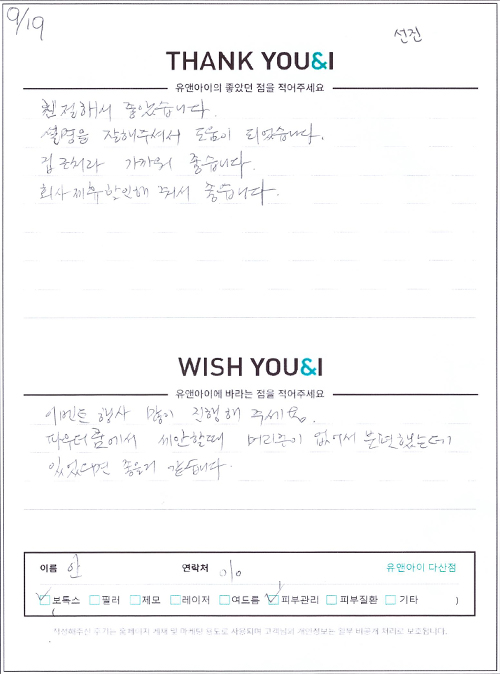 9/19
선진
THANK YOU&I
유앤아이의 좋았던 점을 적어주세요
친절해서 좋았습니다.
설명을 잘해주셔서 도움이 되었습니다.
집 근처라 가까워 좋습니다.
회사 제휴할인해 줘서 좋습니다.
WISH YOU&I
유앤아이에 바라는 점을 적어주세요
이벤트 행사 많이 진행해 주세요.
파우더룸에서 세안할때 머리끈이 없어서 불편했는데
있었다면 좋을거 같습니다.
이름 안 연락처 010 유앤아이 다산점
보톡스 필러 제모 레이저 여드름 피부관리 피부질환 기타 )
작성해주신 후기는 홈페이지 게재 및 마케팅 용도로 사용되며 고객님의 개인정보는 일부 비공개 처리로 보호됩니다.